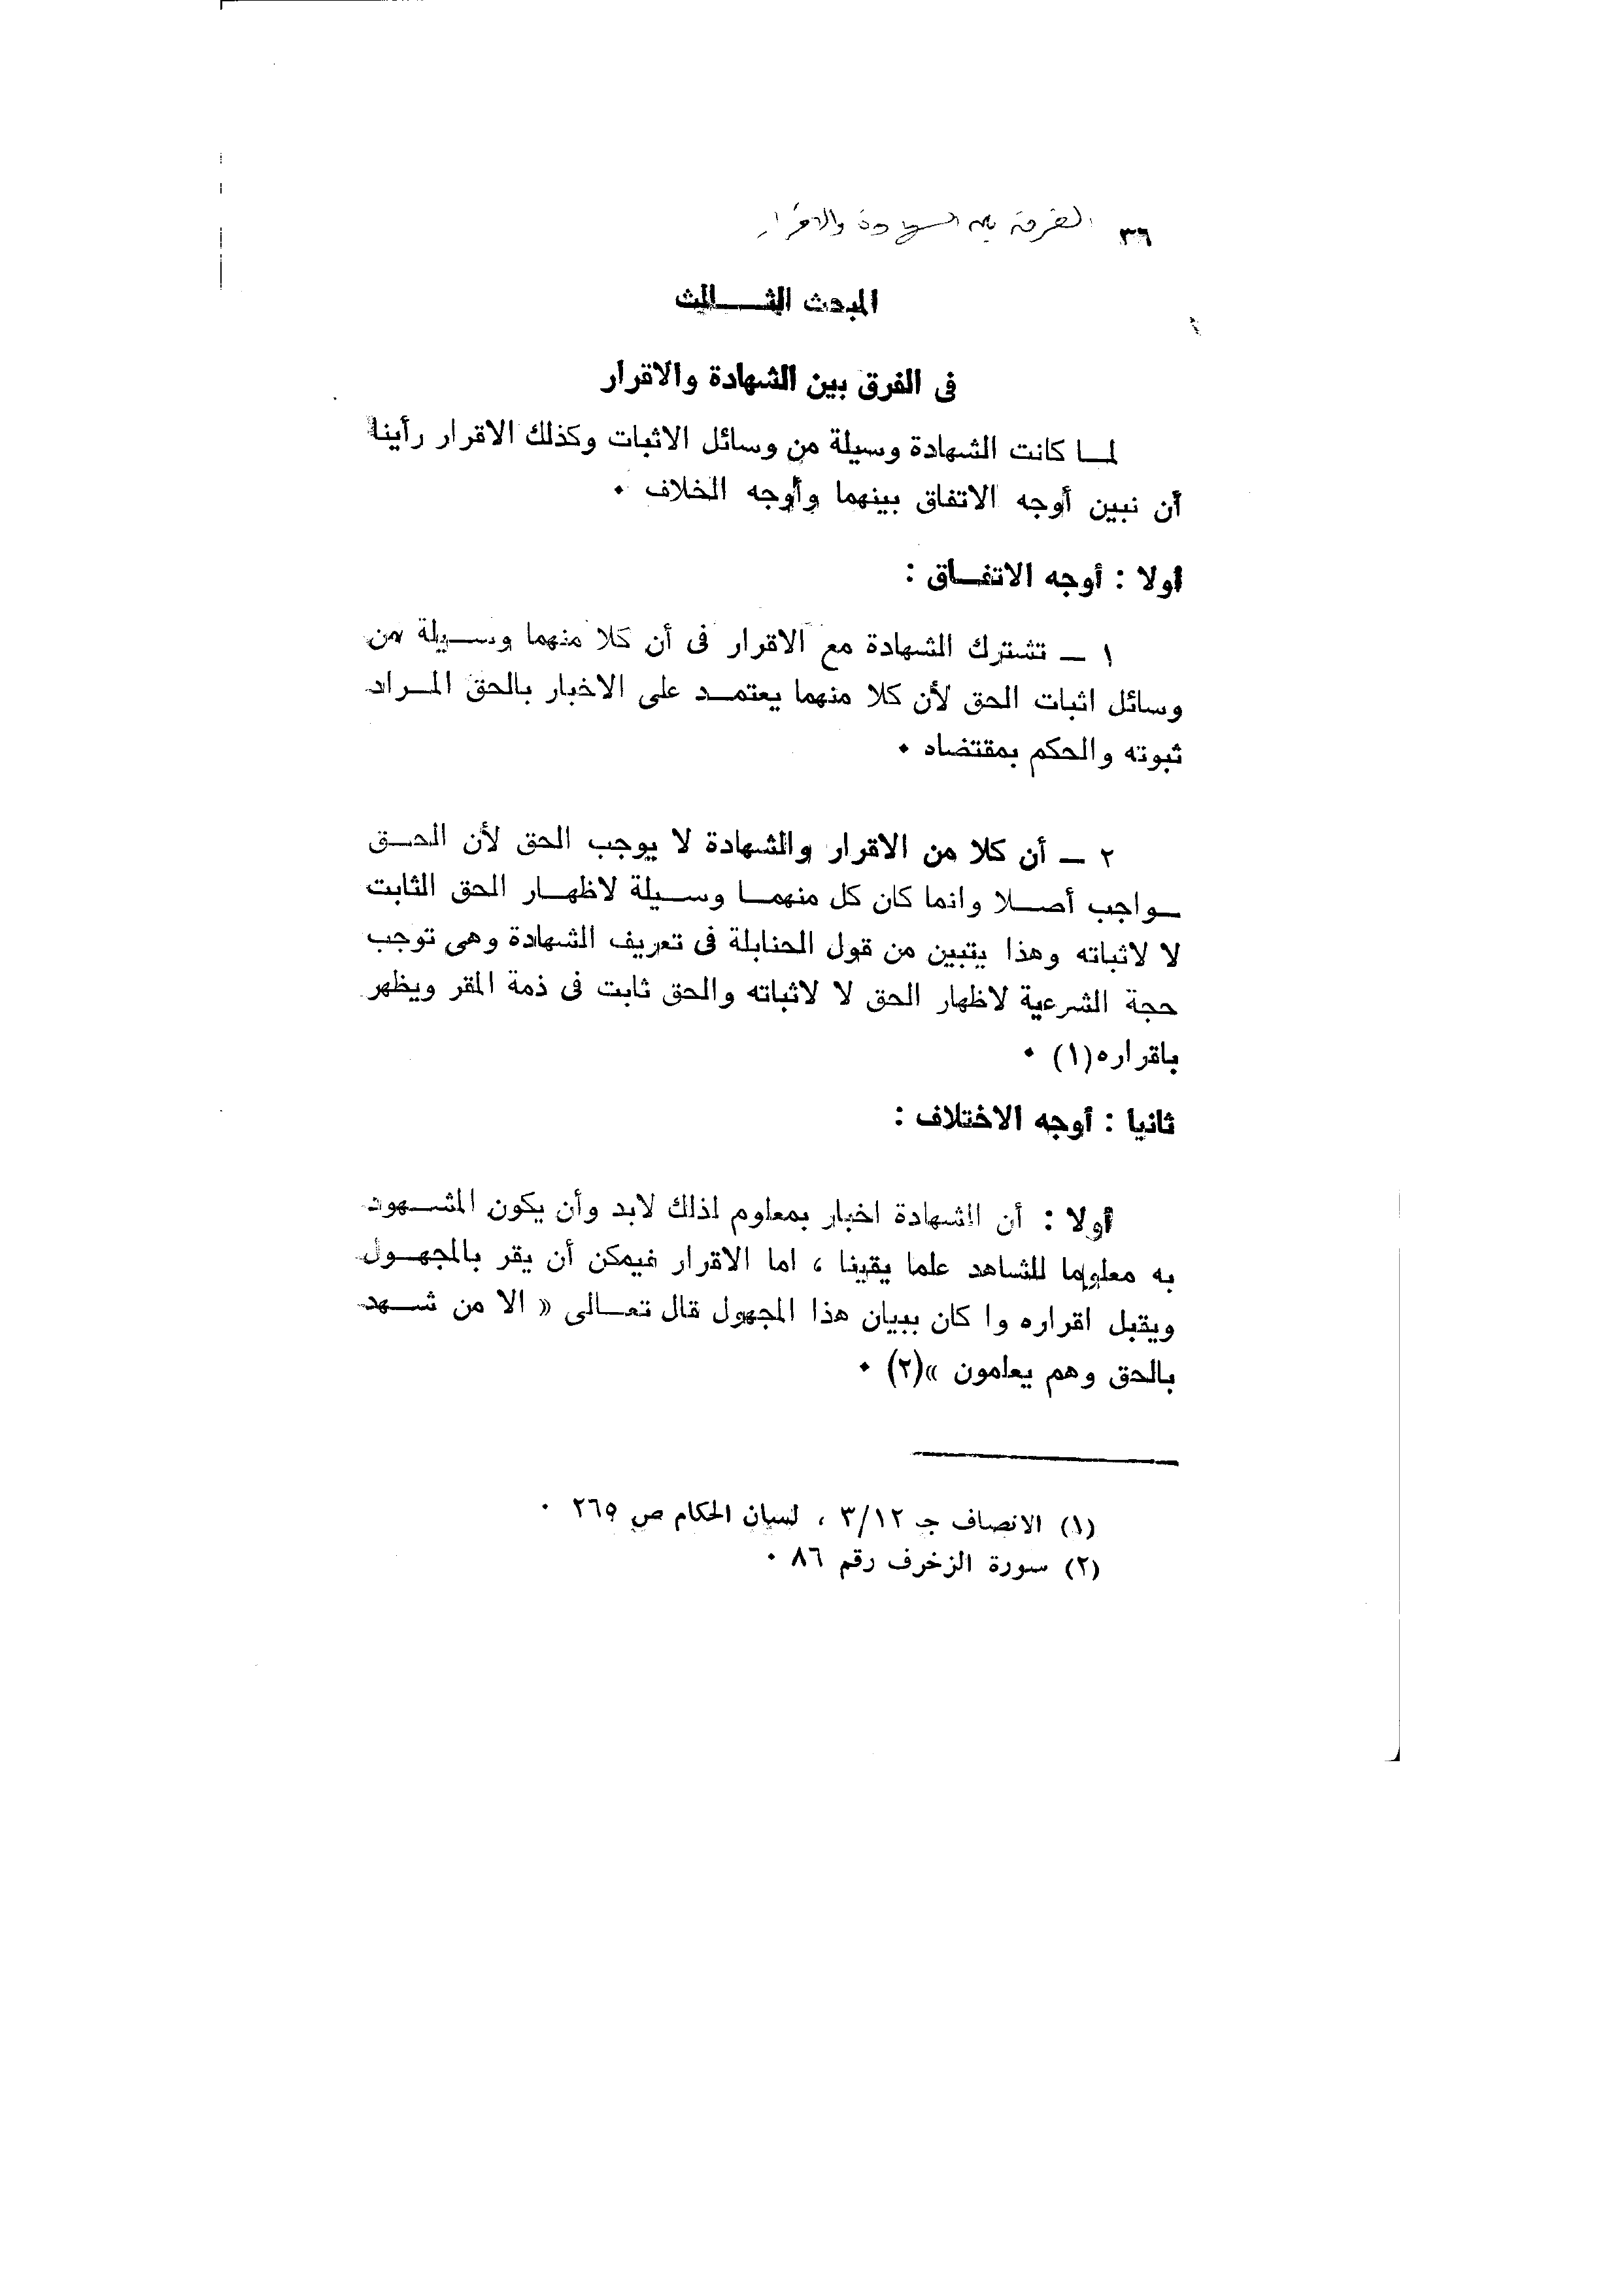 ٣٦ الفرق بين الشهادة والاقرار
المبحث الثـــالث
فى الفرق بين الشهادة والاقرار
لمـا كانت الشهادة وسيلة من وسائل الاثبات وكذلك الاقرار رأينا
أن نبين أوجه الاتفاق بينهما وأوجه الخلاف ٠
أولا : أوجه الاتفـاق :
١ ـ تشترك الشهادة مع الاقرار فى أن كلا منهما وسـيلة من
وسائل اثبات الحق لأن كلا منهما يعتمـد على الاخبار بالحق المـراد
ثبوته والحكم بمقتضاه ٠
٢ ـ أن كلا من الاقرار والشهادة لا يوجب الحق لأن الحـق
ـواجب أصـلا وانما كان كل منهمـا وسـيلة لاظهـار الحق الثابت
لا لاثباته وهذا يتبين من قول الحنابلة فى تعريف الشهادة وهى توجب
حجة الشرعية لاظهار الحق لا لاثباته والحق ثابت فى ذمة المقر ويظهر
باقراره(١) ٠
ثانيا : أوجه الاختلاف :
أولا : أن الشهادة اخبار بمعلوم لذلك لابد وأن يكون المشـهود
به معلوما للشاهد علما يقينا ، اما الاقرار فيمكن أن يقر بالمجهـول
ويقبل اقراره وا كان ببيان هذا المجهول قال تعـالى « الا من شـهد
بالحق وهم يعلمون »(٢) ٠
(١) الانصاف جـ ٣/١٢ ، لسان الحكام ص ٢٦٥ ٠
(٢) سورة الزخرف رقم ٨٦ ٠